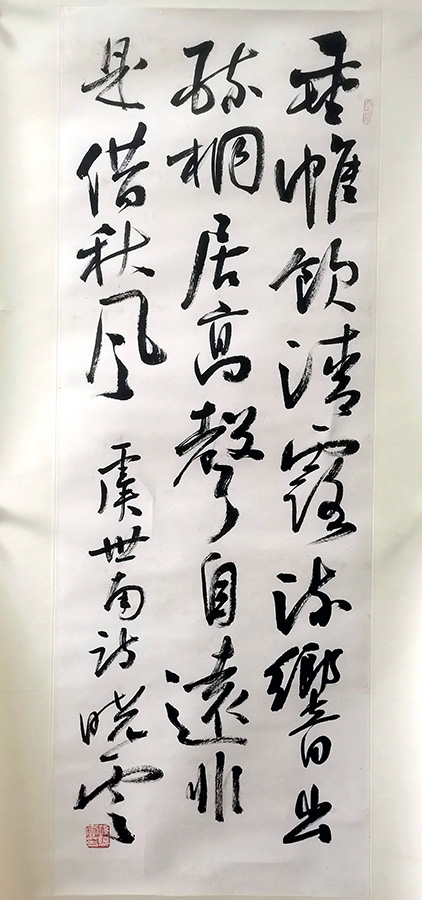 垂帷飲清露流響出
疏桐居高聲自遠非
是借秋風 虞世南詩 曉雲